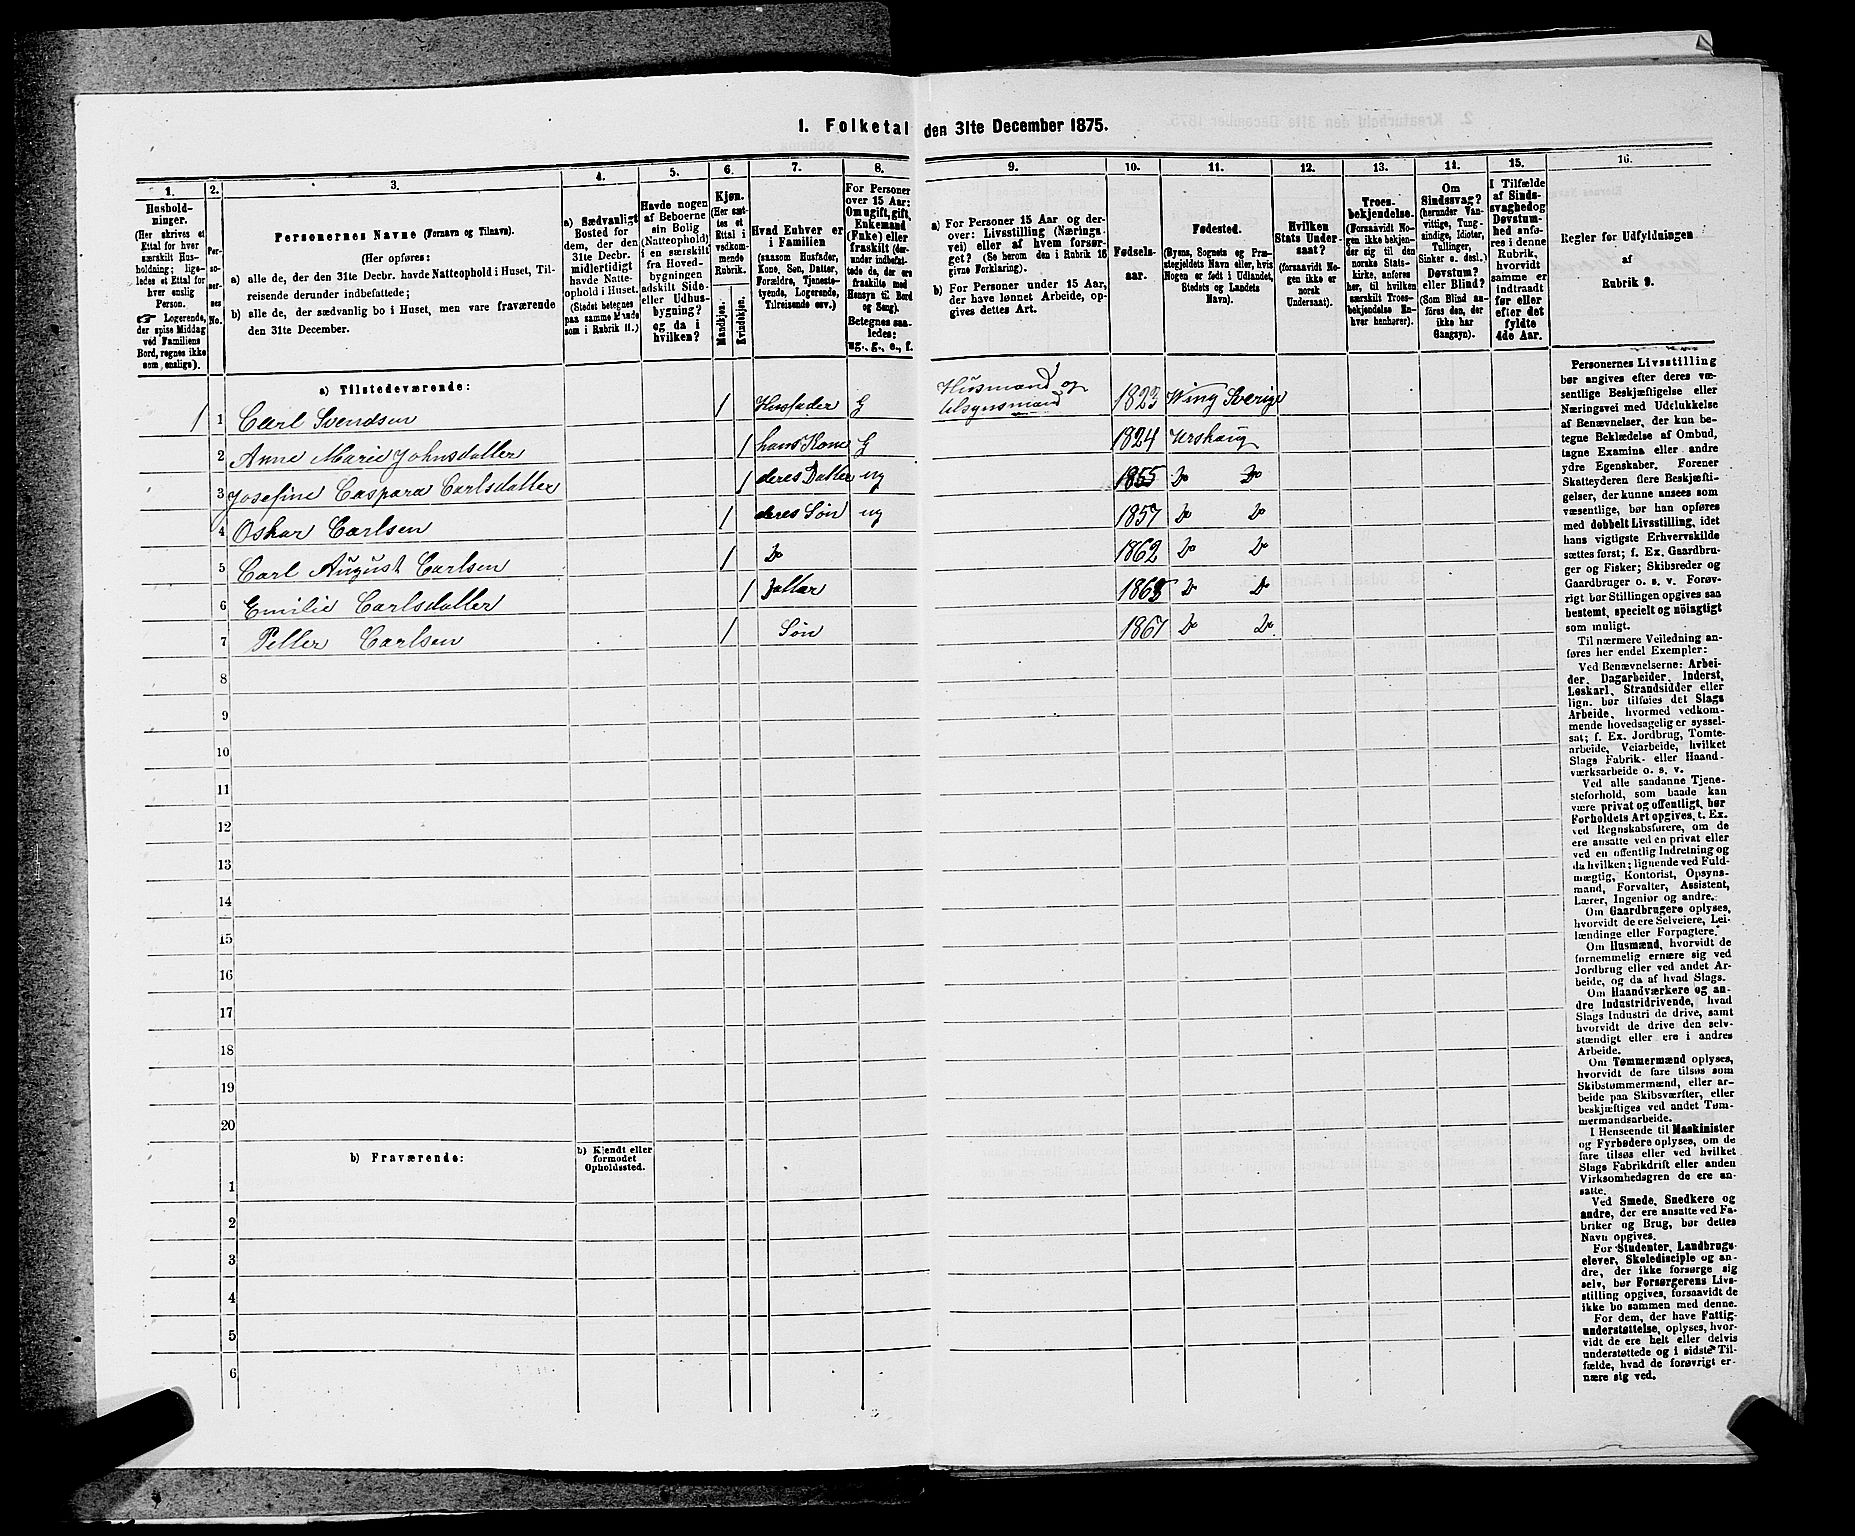 I. Folketal den 31te December 1875.
1. 2. 3. 4. 5. 6. 7. 8. 9. 10. 11. 12. 13. 14. 15. 16.
Hushold-
ninger.
(Her skrives et
Ettal for hver
særskilt Hus-
holdning; lige-
ledes et Ettal for
hver enslig
Person.
☞ Logerende,
der spise Middag
ved Familiens
Bord, regnes ikke
som enslige).
Per-
so-
ner-
nes
No.
Personernes Navne (Fornavn og Tilnavn).
(Her opføres:
a) alle de, der den 31te Decbr. havde Natteophold i Huset, Til-
reisende derunder indbefattede;
b) alle de, der sædvanlig bo i Huset, men vare fraværende
den 31te December.
a) Sædvanligt
Bosted for
dem, der den
31te Decbr.
midlertidigt
havde Natte-
ophold i Huset.
(Stedet betegnes
paa samme Maade
som i Rubrik 11.)
Havde nogen
af Beboerne
sin Bolig
(Natteophold)
i en særskilt
fra Hoved-
bygningen
adskilt Side-
eller Udhus-
bygning?
og da i
hvilken?
Kjøn.
(Her sæt-
tes et
Ettal i
vedkom-
mende
Rubrik.
Mandkjøn.
Kvindekjøn.
Hvad Enhver er
i Familien
(saasom Husfader,
Kone, Søn, Datter,
Forældre, Tjeneste-
tyende, Logerende,
Tilreisende osv.)
For Personer
over 15 Aar:
Om ugift, gift,
Enkemand
(Enke) eller
fraskilt (der-
under indbefat-
tede de, der ere
fraskilte med
Hensyn til Bord
og Seng).
Betegnes saa-
ledes:
ug., g., e., f.
a) For Personer 15 Aar og der-
over: Livsstilling (Nærings-
vei) eller af hvem forsør-
get? (Se herom den i Rubrik 16
givne Forklaring).
b) For Personer under 15 Aar,
der have lønnet Arbeide, op-
gives dettes Art.
Fødsels-
aar.
Fødested.
(Byens, Sognets og Præ-
stegjeldets Navn eller, hvis
Nogen er født i Udlandet,
Stedets og Landets
Navn).
Hvilken
Stats Under-
saat?
(forsaavidt No-
gen ikke er
norsk
Undersaat).
Troes-
bekjendelse.
(Forsaavidt No-
gen ikke bekjen-
der sig til den
norske Stats-
kirke, anføres
her, til hvilken
særskilt Troes-
bekjendelse En-
hver henhører).
Om
Sindssvag?
(herunder Van-
vittige, Tung-
sindige, Idioter,
Tullinger,
Sinker o. desl.)
Døvstum?
eller Blind?
(Som Blind an-
føres den, der
ikke har
Gangsyn).
I Tilfælde
af Sinds-
svaghed og
Døvstum-
hed anfø-
res i denne
Rubrik,
hvorvidt
samme er
indtraadt
før eller
efter det
fyldte
4de Aar.
Regler for Udfyldningen
af
Rubrik 9.
a) Tilstedeværende:
1 1 Carl Svendsen 1 Husfader G Husmand og
Tilsynsmand 1823 Wing Sverige
2 Anne Marie Johnsdatter 1 hans Kone G 1824 Urskoug
3 Josefine Caspara Carlsdatter 1 deres Datter ug 1855 Do Do
4 Oskar Carlsen 1 deres Søn ug 1857 Do Do
5 Carl August Carlsen 1 Do 1862 Do Do
6 Emilie Carlsdatter 1 Datter 1865 Do Do
7 Petter Carlsen 1 Søn 1867 Do Do
8
9
10
11
12
13
14
15
16
17
18
19
20
b) Fraværende:
b) Kjendt eller
formodet
Opholdssted.
1
2
3
4
5
6
Personernes Livsstilling
bør angives efter deres væ-
sentlige Beskjæftigelse eller
Næringsvei med Udelukkelse
af Benævnelser, der kun be-
tegne Beklædelse af Ombud,
tagne Examina eller andre
ydre Egenskaber. Forener
Skatteyderen flere Beskjæfti-
gelser, der kunne ansees som
væsentlige, bør han opføres
med dobbelt Livsstilling, idet
hans vigtigste Erhvervskilde
sættes først; f. Ex. Gaardbru-
ger og Fisker; Skibsreder og
Gaardbruger o. s. v. Forøv-
rigt bør Stillingen opgives saa
bestemt, specielt og nöiagtigt
som muligt.
Til nærmere Veiledning an-
føres her endel Exempler:
Ved Benævnelserne: Arbei-
der, Dagarbeider, Inderst,
Løskarl, Strandsidder eller
lign. bør tilføies det Slags
Arbeide, hvormed vedkom-
mende hovedsagelig er syssel-
sat; f. Ex. Jordbrug, Tomte-
arbeide, Veiarbeide, hvilket
Slags Fabrik- eller Haand-
værksarbeide o. s. v.
Ved alle saadanne Tjene-
steforhold, som baade kan
være privat og offentligt, bør
Forholdets Art opgives, t. Ex.
ved Regnskabsførere, om de
ere ansatte ved en privat eller
ved en offentlig Indretning og
da hvilken; lignende ved Fuld-
mægtig, Kontorist, Opsyns-
mand, Forvalter, Assistent,
Lærer, Ingeniør og andre.
Om Gaardbrugere oplyses,
hvorvidt de ere Selveiere, Lei-
lændinge eller Forpagtere.
Om Husmænd, hvorvidt de
fornemmelig ernære sig ved
Jordbrug eller ved andet Ar-
beide, og da af hvad Slags.
Om Haandværkere og an-
dre Industridrivende, hvad
Slags Industri de drive, samt
hvorvidt de drive den selv-
stændigt eller ere i andres
Arbeide.
Om Tømmermænd oplyses,
hvorvidt de fare tilsøs som
Skibstømmermænd, eller ar-
beide paa Skibsværfter, eller
beskjæftiges ved andet Tøm-
mermandsarbeide.
I Henseende til Maskinister
og Fyrbødere oplyses, om de
fare tilsøs eller ved hvilket
Slags Fabrikdrift eller anden
Virksomhedsgren de ere an-
satte.
Ved Smede, Snedkere og
andre, der ere ansatte ved Fa-
briker og Brug, bør dettes
Navn opgives.
For Studenter, Landbrugs-
elever, Skoledisciple og an-
dre, der ikke forsørge sig
selv, bør Forsørgerens Livs-
stilling opgives, forsaavidt de
ikke bo sammen med denne.
For dem, der have Fattig-
understøttelse, oplyses, hvor-
vidt de ere helt eller delvis
understøttede og i sidste Til-
fælde, hvad de forøvrigt er-
nære sig ved.